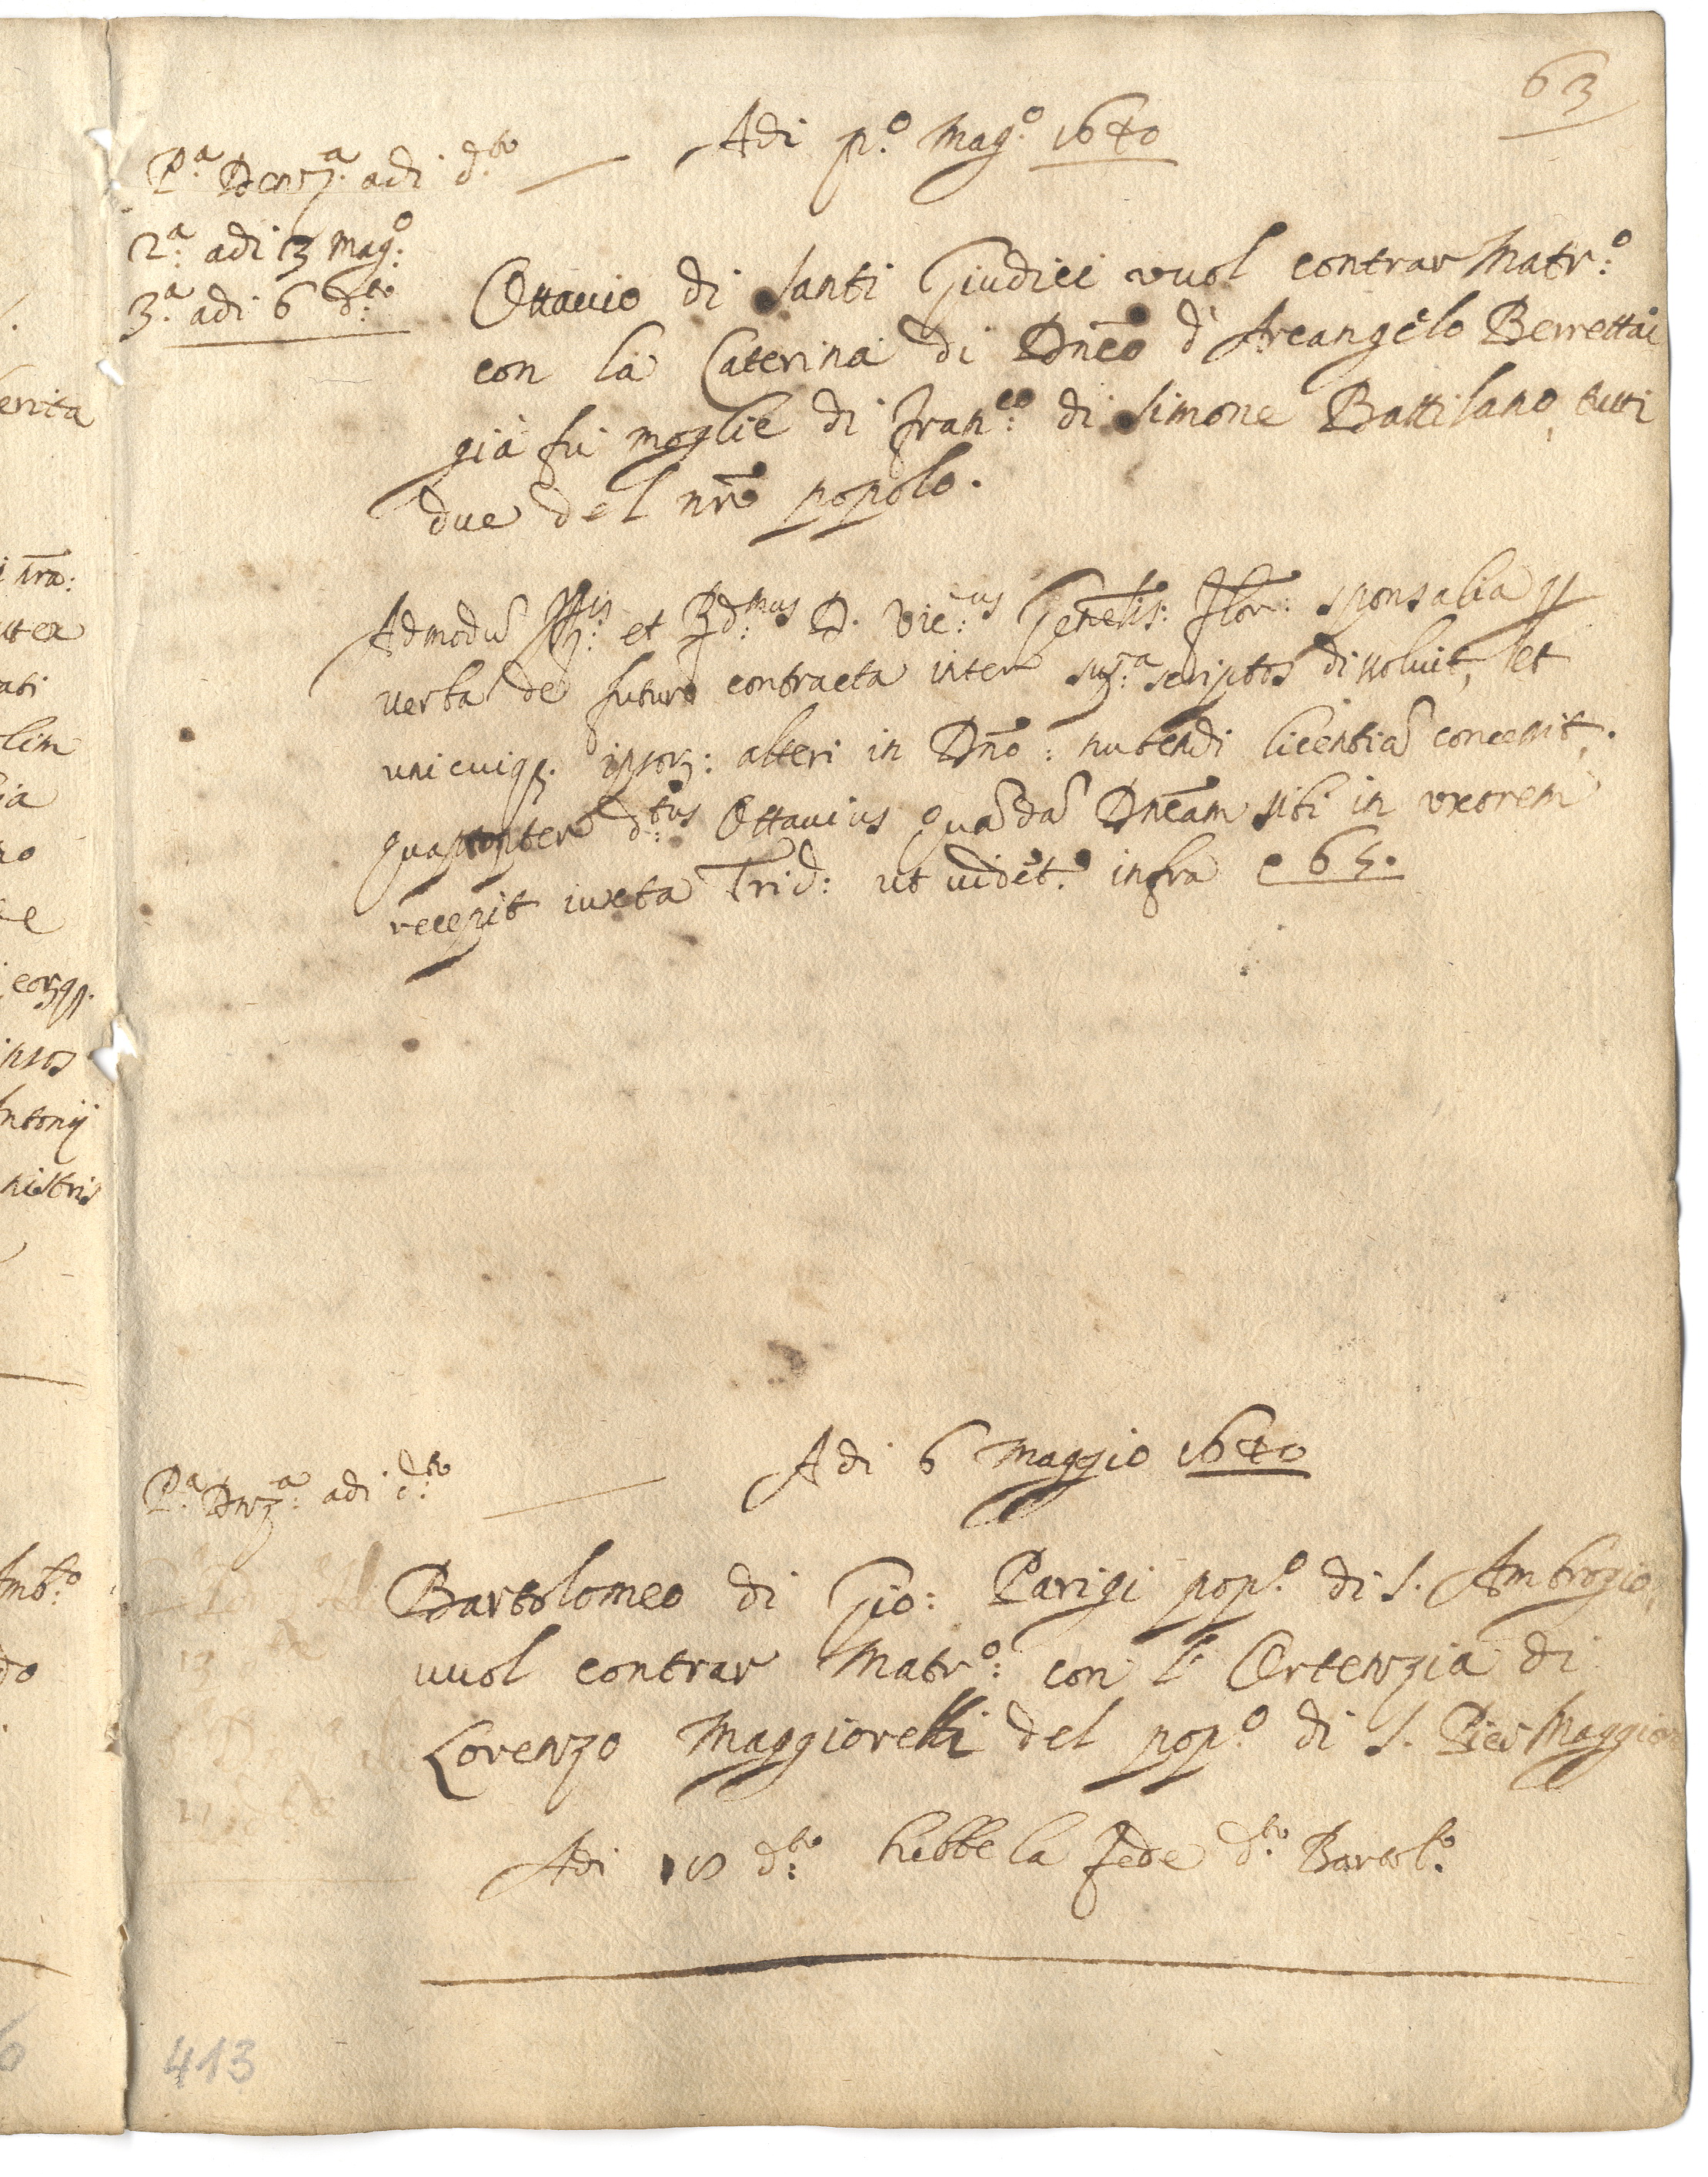 63
Adi p.º Mag.º 1640
P.ª Denz.ª adi d.to
2.ª adi 3 Mag.º
3.ª adi 6 d.to
Ottauio di Santi Giudici vuol contrar Matr.º
con la Caterina di Dnco d'Arcangelo Berrettai
già fu moglie di Fran.co di Simone Battilano, tutti
due del nrõ popolo.
Admodũ Ill.is et R.d.mus D. Vic.us Genelis: Flor: sponsalia p
verba de futuro contracta inter sup.ª scriptos dissoluit, et
unicuiq. ipsor: alteri in Dnõ: nubendi licentiã concessit.
quapropter d.tus Ottauius quãdã Dnẽam sibi in uxorem
recepit iuxta Trid: ut uidet.r infra c 65.
Adi 6 Maggio 1640
P.ª Dnz.ª adi d.to
Bartolomeo di Gio: Parigi pop.º di S. Ambrogio
uuol contrar Matr.º: con l'Ortenzia di
Lorenzo Maggiorelli del pop.º di S. Pier Maggior
Adi d.to hebbe la fede d.to Bartol.º
413